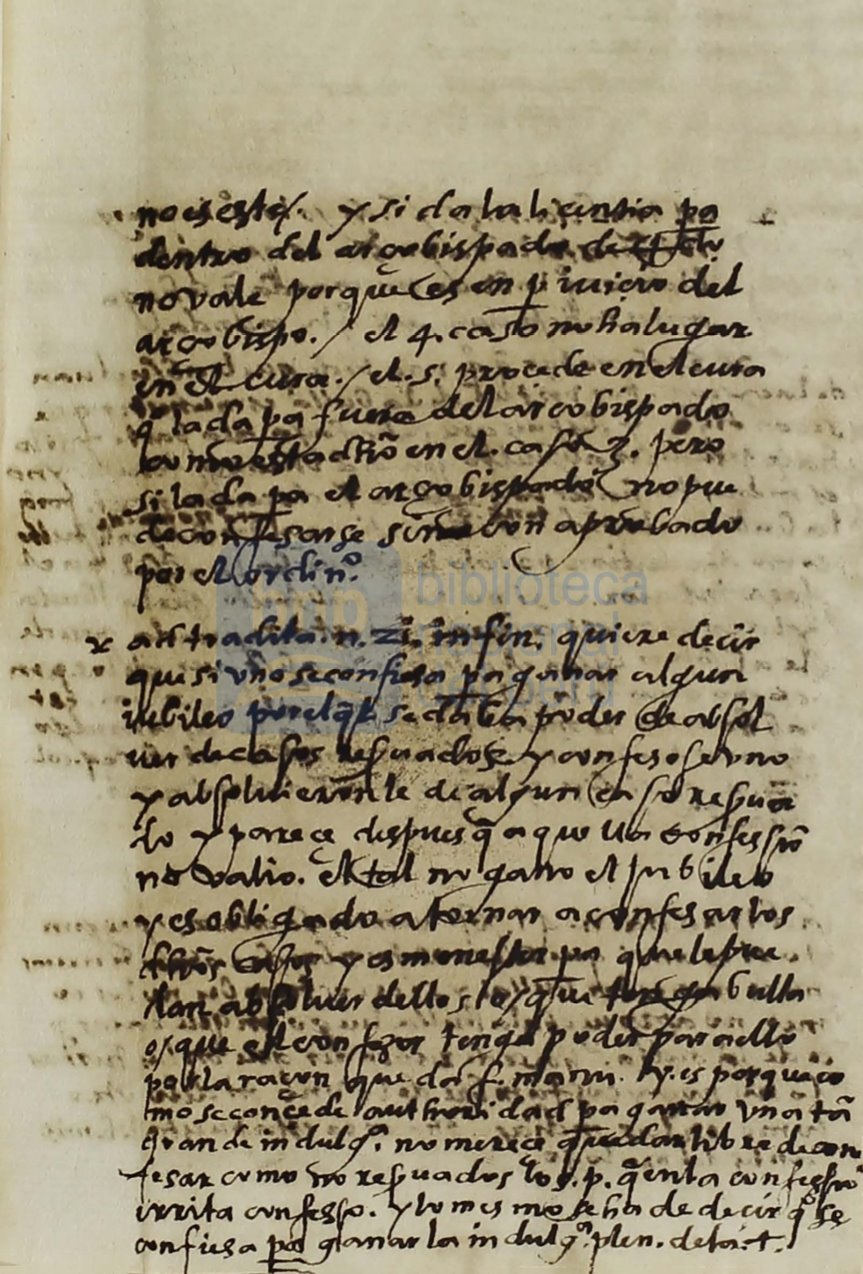 no es este/. y si da la licentia pa
dentro del arçobispado de
no vale porque es en p iuicio del
arçobispo. / el 4. caso no ha lugar
en el cura. / el. 5. procede en el cura
q̃ la da pa fuera del arçobispado
como esta dho en el. caso 3. pero
si la da pa el arçobispado no pue
de confesarse sino con aprobado
por el ordin.º
ad tradita. n. 21. in fin. quiere decir
que si uno se confiesa pa ganar algun
iubileo por el q̃l se daba poder de absol
uer de casos resuados y confesose uno
y absoluieronle de algun caso resua
do y pareçe despues q̃ aquella confessiõ
no valio. el tal no gano el jubileo
y es obligado a tornar a confesar los
dhõs casos y es menester pa que le pue
dan absoluer dellos o/que tenga bulla
o/que el confesor tenga poder para ello
por la raçon que da f. manu. y es porque co
mo se conçede authoridad pa ganar vna tã
grande indulg.ª no mereçe quedar libre de con
fesar como no resuados los p. q̃ en la confessiõ
irrita confesso. y lo mesmo se ha de decir q̃ se
confiesa pa ganar la indulg.ª plen. de
biblioteca
nacional